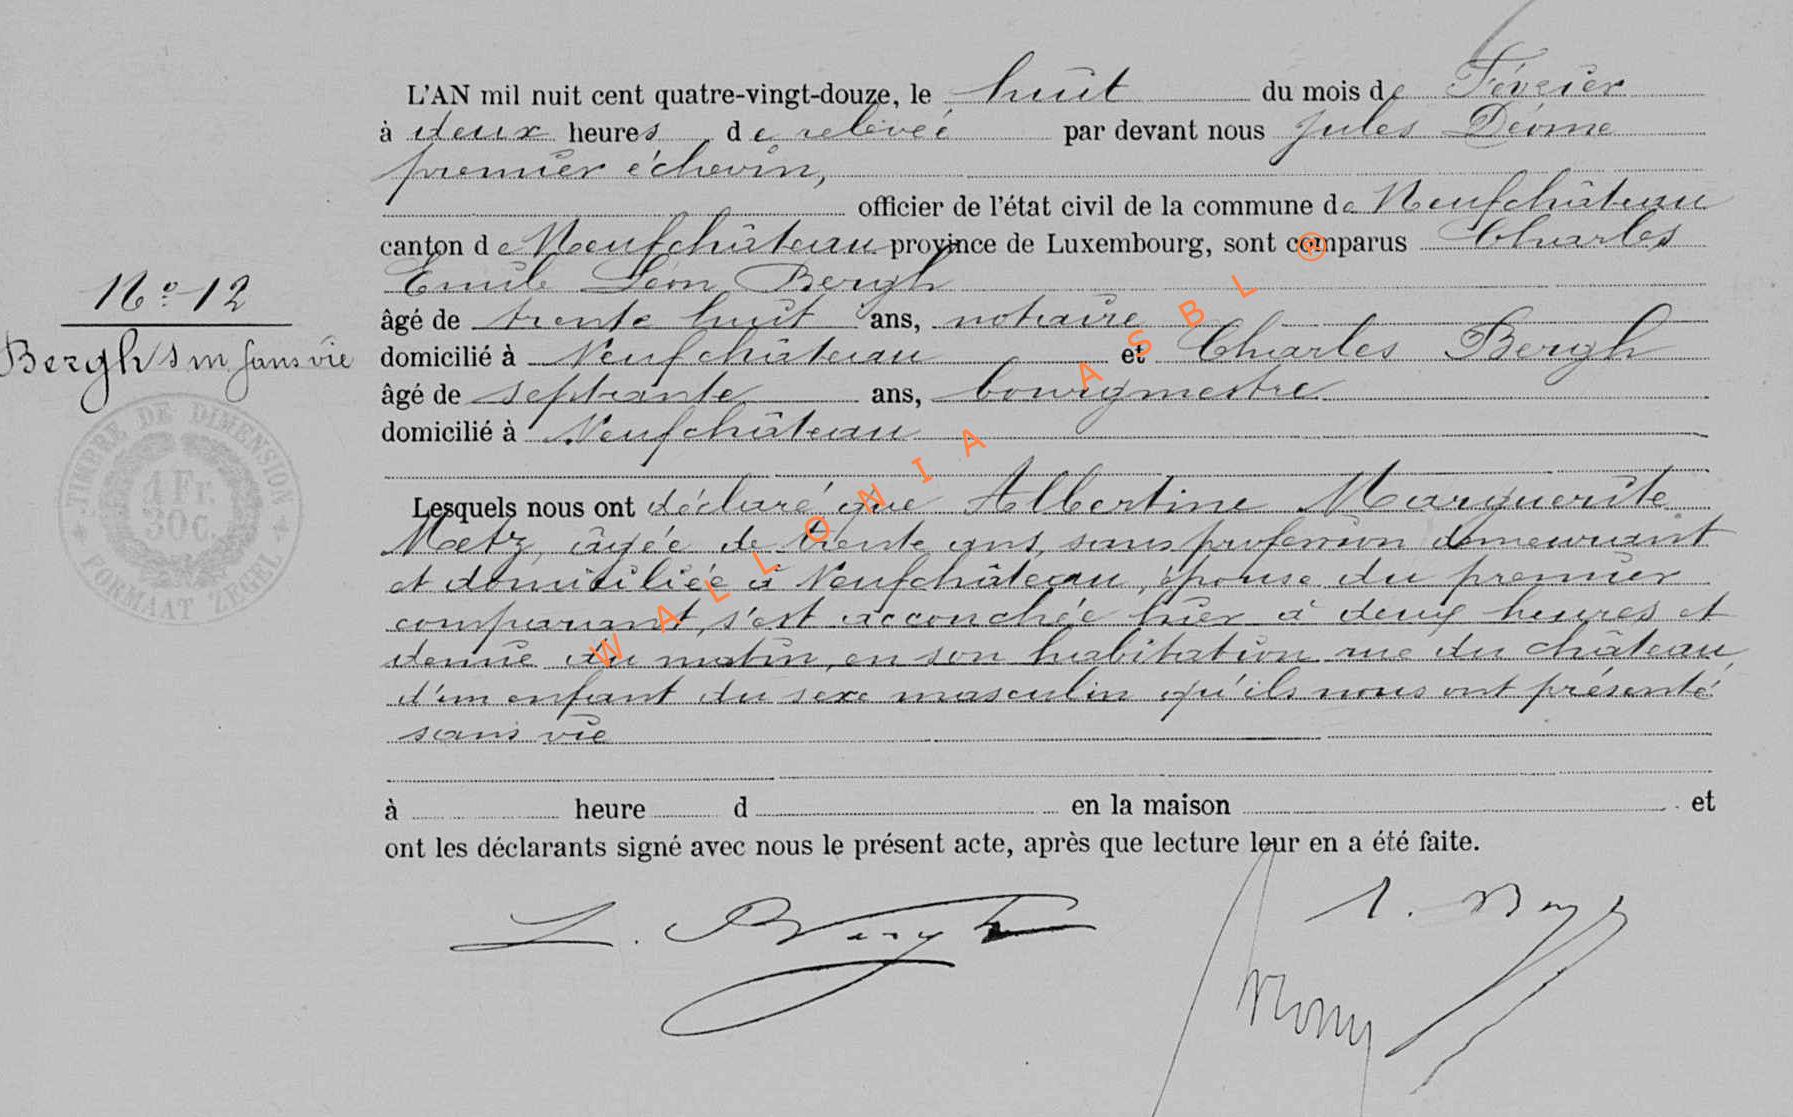 L'AN mil huit cent quatre-vingt-douze, le huit du mois de Février
à deux heures de relevée par devant nous Jules Dérome
premier échevin,
officier de l'état civil de la commune de Neufchâteau
canton de Neufchâteau province de Luxembourg, sont comparus Charles
Emile Léon Bergh
âgé de trente huit ans, notaire
domicilié à Neufchâteau et Charles Bergh
âgé de septante ans, bourgmestre
domicilié à Neufchâteau
Lesquels nous ont déclaré que Albertine Marguerite
Metz, âgée de trente ans, sans profession demeurant
et domiciliée à Neufchâteau, épouse du premier
comparant, s'est accouchée hier à deux heures et
demie du matin, en son habitation rue du château,
d'un enfant du sexe masculin qu'ils nous ont présenté
sans vie
à heure d en la maison et
ont les déclarants signé avec nous le présent acte, après que lecture leur en a été faite.
L. Bergh
Bergh
No 12
Bergh s m sans vie
TIMBRE DE DIMENSION
1 Fr.
30 C.
FORMAAT ZEGEL
WALLONIA ASBL ®